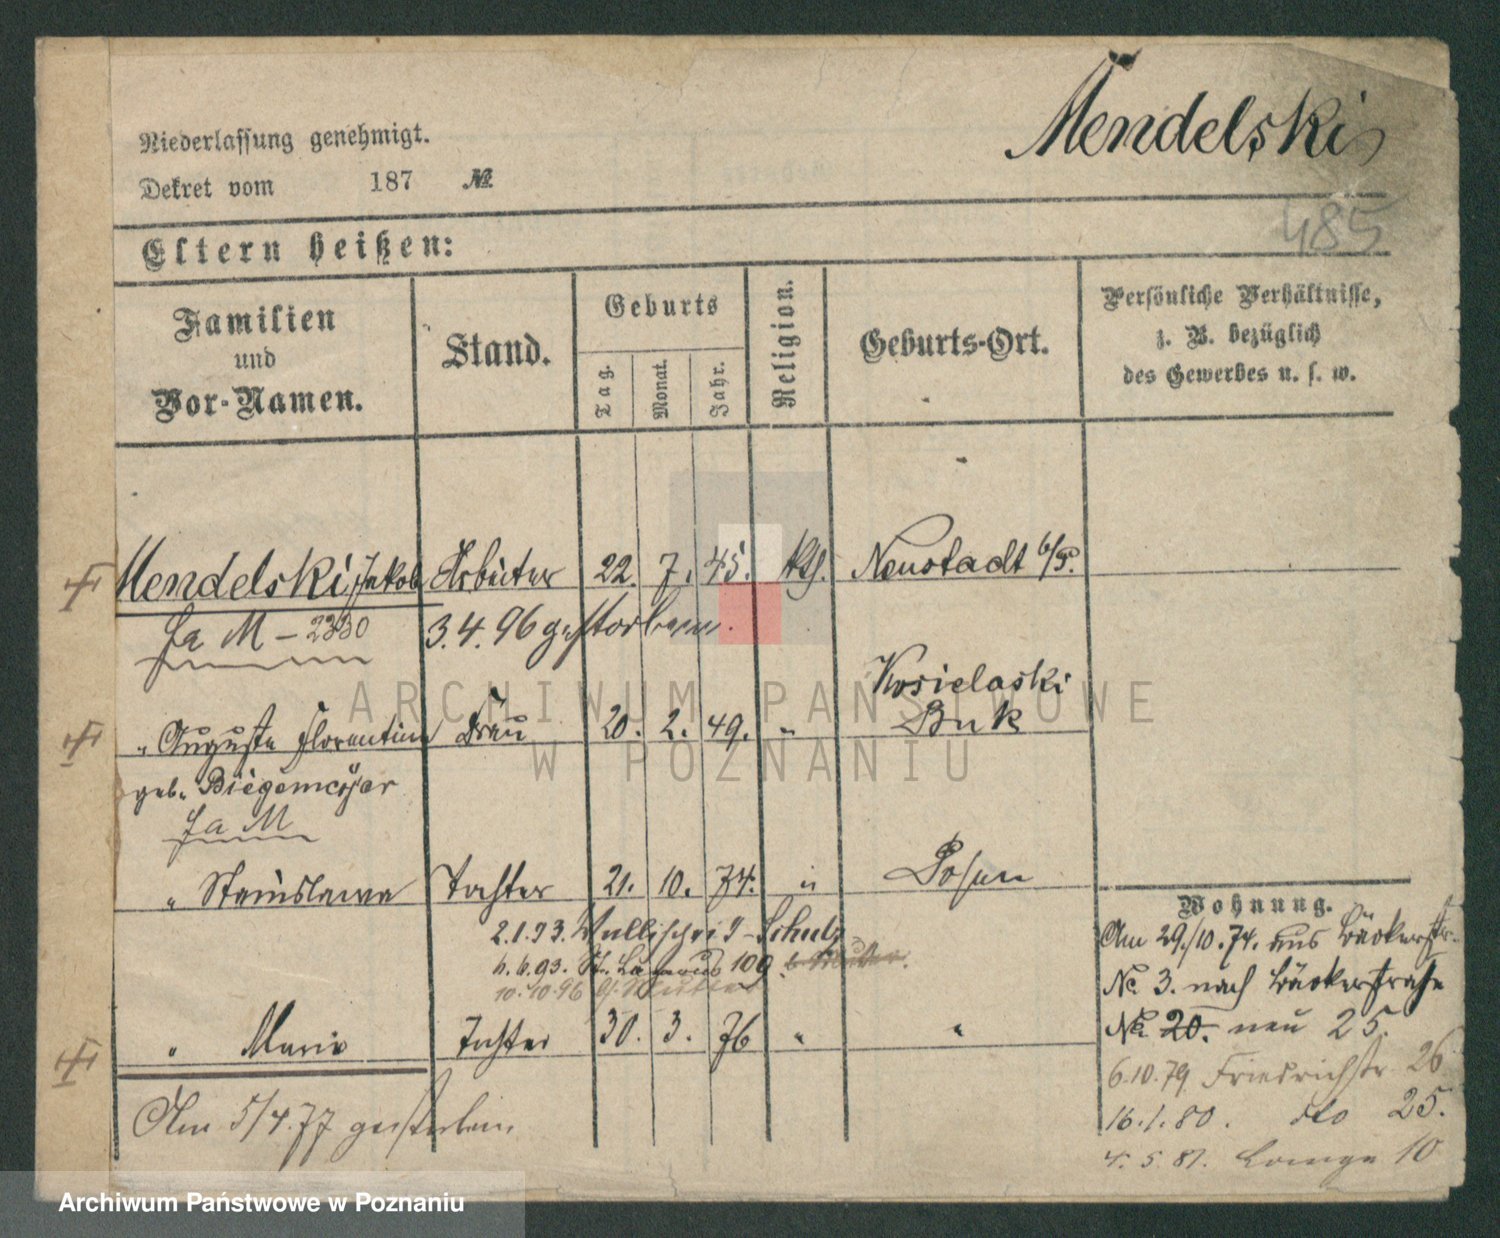 Mendelski
Niederlassung genehmigt.
Dekret vom 187 №
485
Eltern heißen:
Familien und Vor-Namen.
Stand.
Geburts
Tag. Monat. Jahr.
Religion.
Geburts-Ort.
Persönliche Verhältnisse,
z. B. bezüglich
des Gewerbes u. s. w.
Mendelski Jakob Arbeiter 22. 7. 45. kth. Neustadt b/P.
Ja M - 2330 3.4.96 gestorben.
Kosielaski
" Auguste Florentine Frau 20. 2. 49. " Buk
geb. Biegemeyer
Ja M
" Stanislawa Tochter 21. 10. 74. " Posen
2.1.93. Wallischei 9 - Schulz
6.6.93. St. Lazarus 109
10.10.96 Mutter
" Marie Tochter 30. 3. 76 " "
Am 5/4.77 gestorben
Wohnung.
Am 29./10.74. aus Bäckerstr.
No 3. nach Bäckerstraße
No 20. neu 25.
6.10.79 Friedrichstr 26
16.1.80. dto 25.
4.5.81. Lange 10
ARCHIWUM PAŃSTWOWE
W POZNANIU
Archiwum Państwowe w Poznaniu